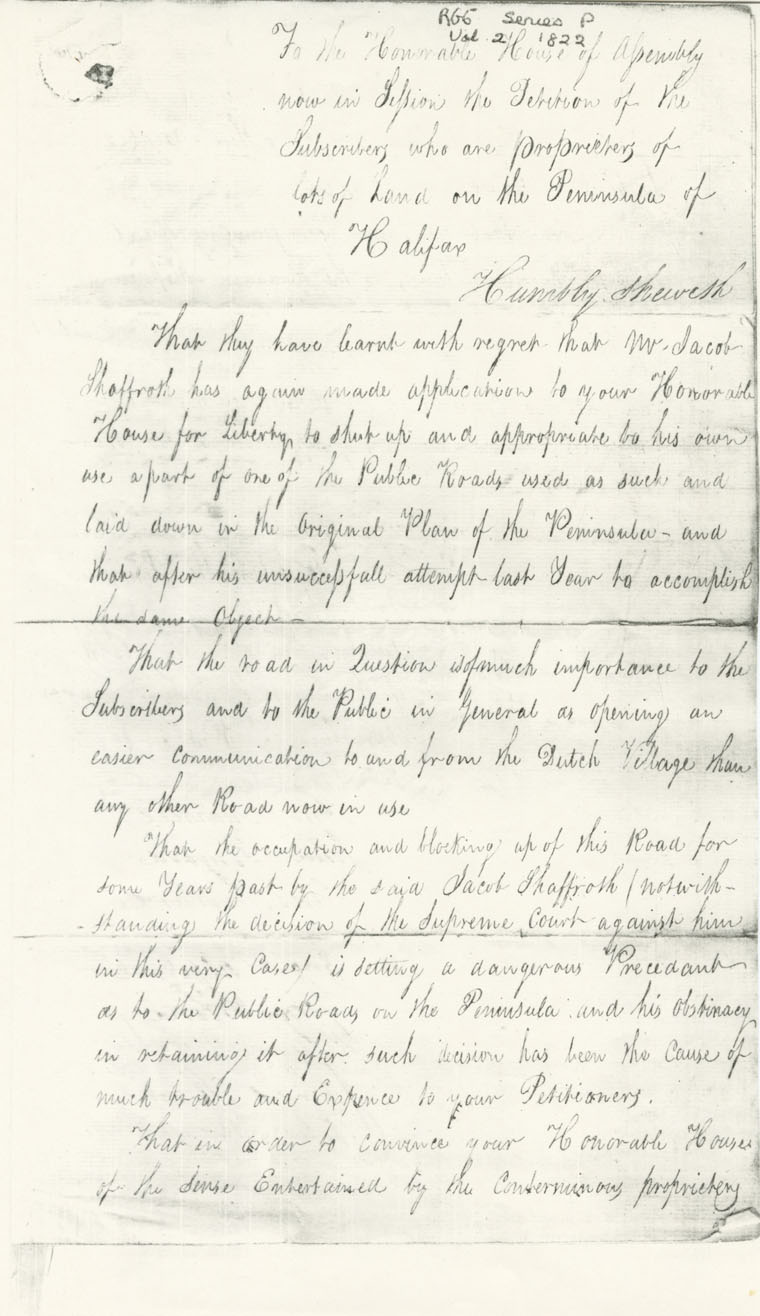 RG5 Series P
Vol. 21 1822
To the Honorable House of Assembly
now in Session the Petition of the
Subscribers who are proprieters of
lots of Land on the Peninsula of
Halifax
Humbly Sheweth
That they have learnt with regret that Mr. Jacob
Shaffroth has again made application to your Honorable
House for Liberty to shut up and appropriate to his own
use a part of one of the Public Roads used as such and
laid down in the Original Plan of the Peninsula - and
that after his unsuccessfull attempt last Year to accomplish
the same Object -
That the road in Question is of much importance to the
Subscribers and to the Public in General as opening an
easier communication to and from the Dutch Village than
any other Road now in use
That the occupation and blocking up of this Road for
some Years past by the said Jacob Shaffroth (notwith-
-standing the decision of the Supreme Court against him
in this very Case) is setting a dangerous Precedant
as to the Public Roads on the Peninsula and his obstinacy
in retaining it after such decision has been the Cause of
much trouble and Expence to your Petitioners.
That in order to convince your Honorable House
of the Sense Entertained by the Conterminous proprieters